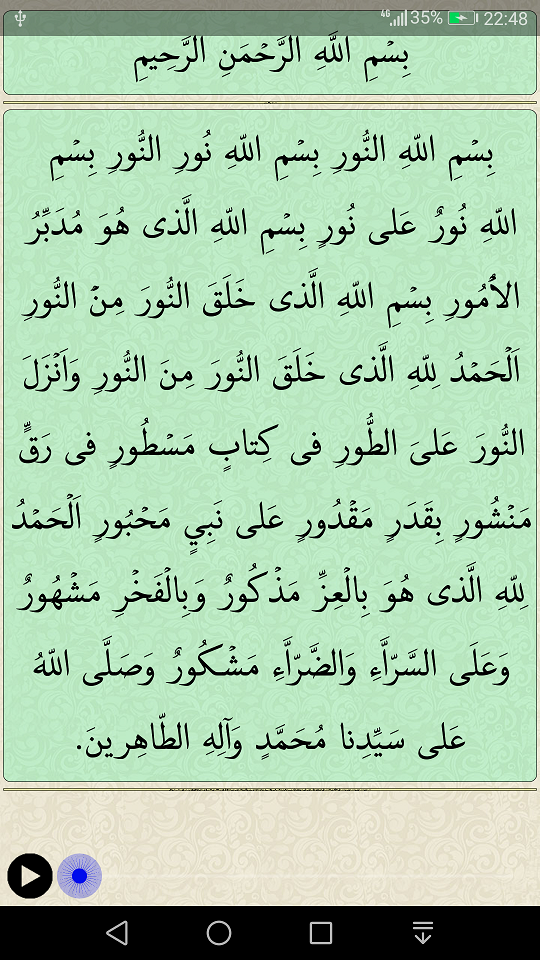 4G 35% 22:48
بِسْمِ اللَّهِ الرَّحْمَنِ الرَّحِيمِ
بِسْمِ اللّهِ النُّورِ بِسْمِ اللّهِ نُورِ النُّورِ بِسْمِ
اللّهِ نُورٌ عَلى نُورٍ بِسْمِ اللّهِ الَّذى هُوَ مُدَبِّرُ
الاُْمُورِ بِسْمِ اللّهِ الَّذى خَلَقَ النُّورَ مِنْ النُّورِ
اَلْحَمْدُ لِلّهِ الَّذى خَلَقَ النُّورَ مِنَ النُّورِ وَاَنْزَلَ
النُّورَ عَلىَ الطُّورِ فى كِتابٍ مَسْطُورٍ فى رَقٍّ
مَنْشُورٍ بِقَدَرٍ مَقْدُورٍ عَلى نَبِيٍ مَحْبُورٍ اَلْحَمْدُ
لِلّهِ الَّذى هُوَ بِالْعِزِّ مَذْكُورٌ وَبِالْفَخْرِ مَشْهُورٌ
وَعَلَى السَّرَّاءِ وَالضَّرَّاءِ مَشْكُورٌ وَصَلَّى اللّهُ
عَلى سَيِّدِنا مُحَمَّدٍ وَآلِهِ الطّاهِرينَ.